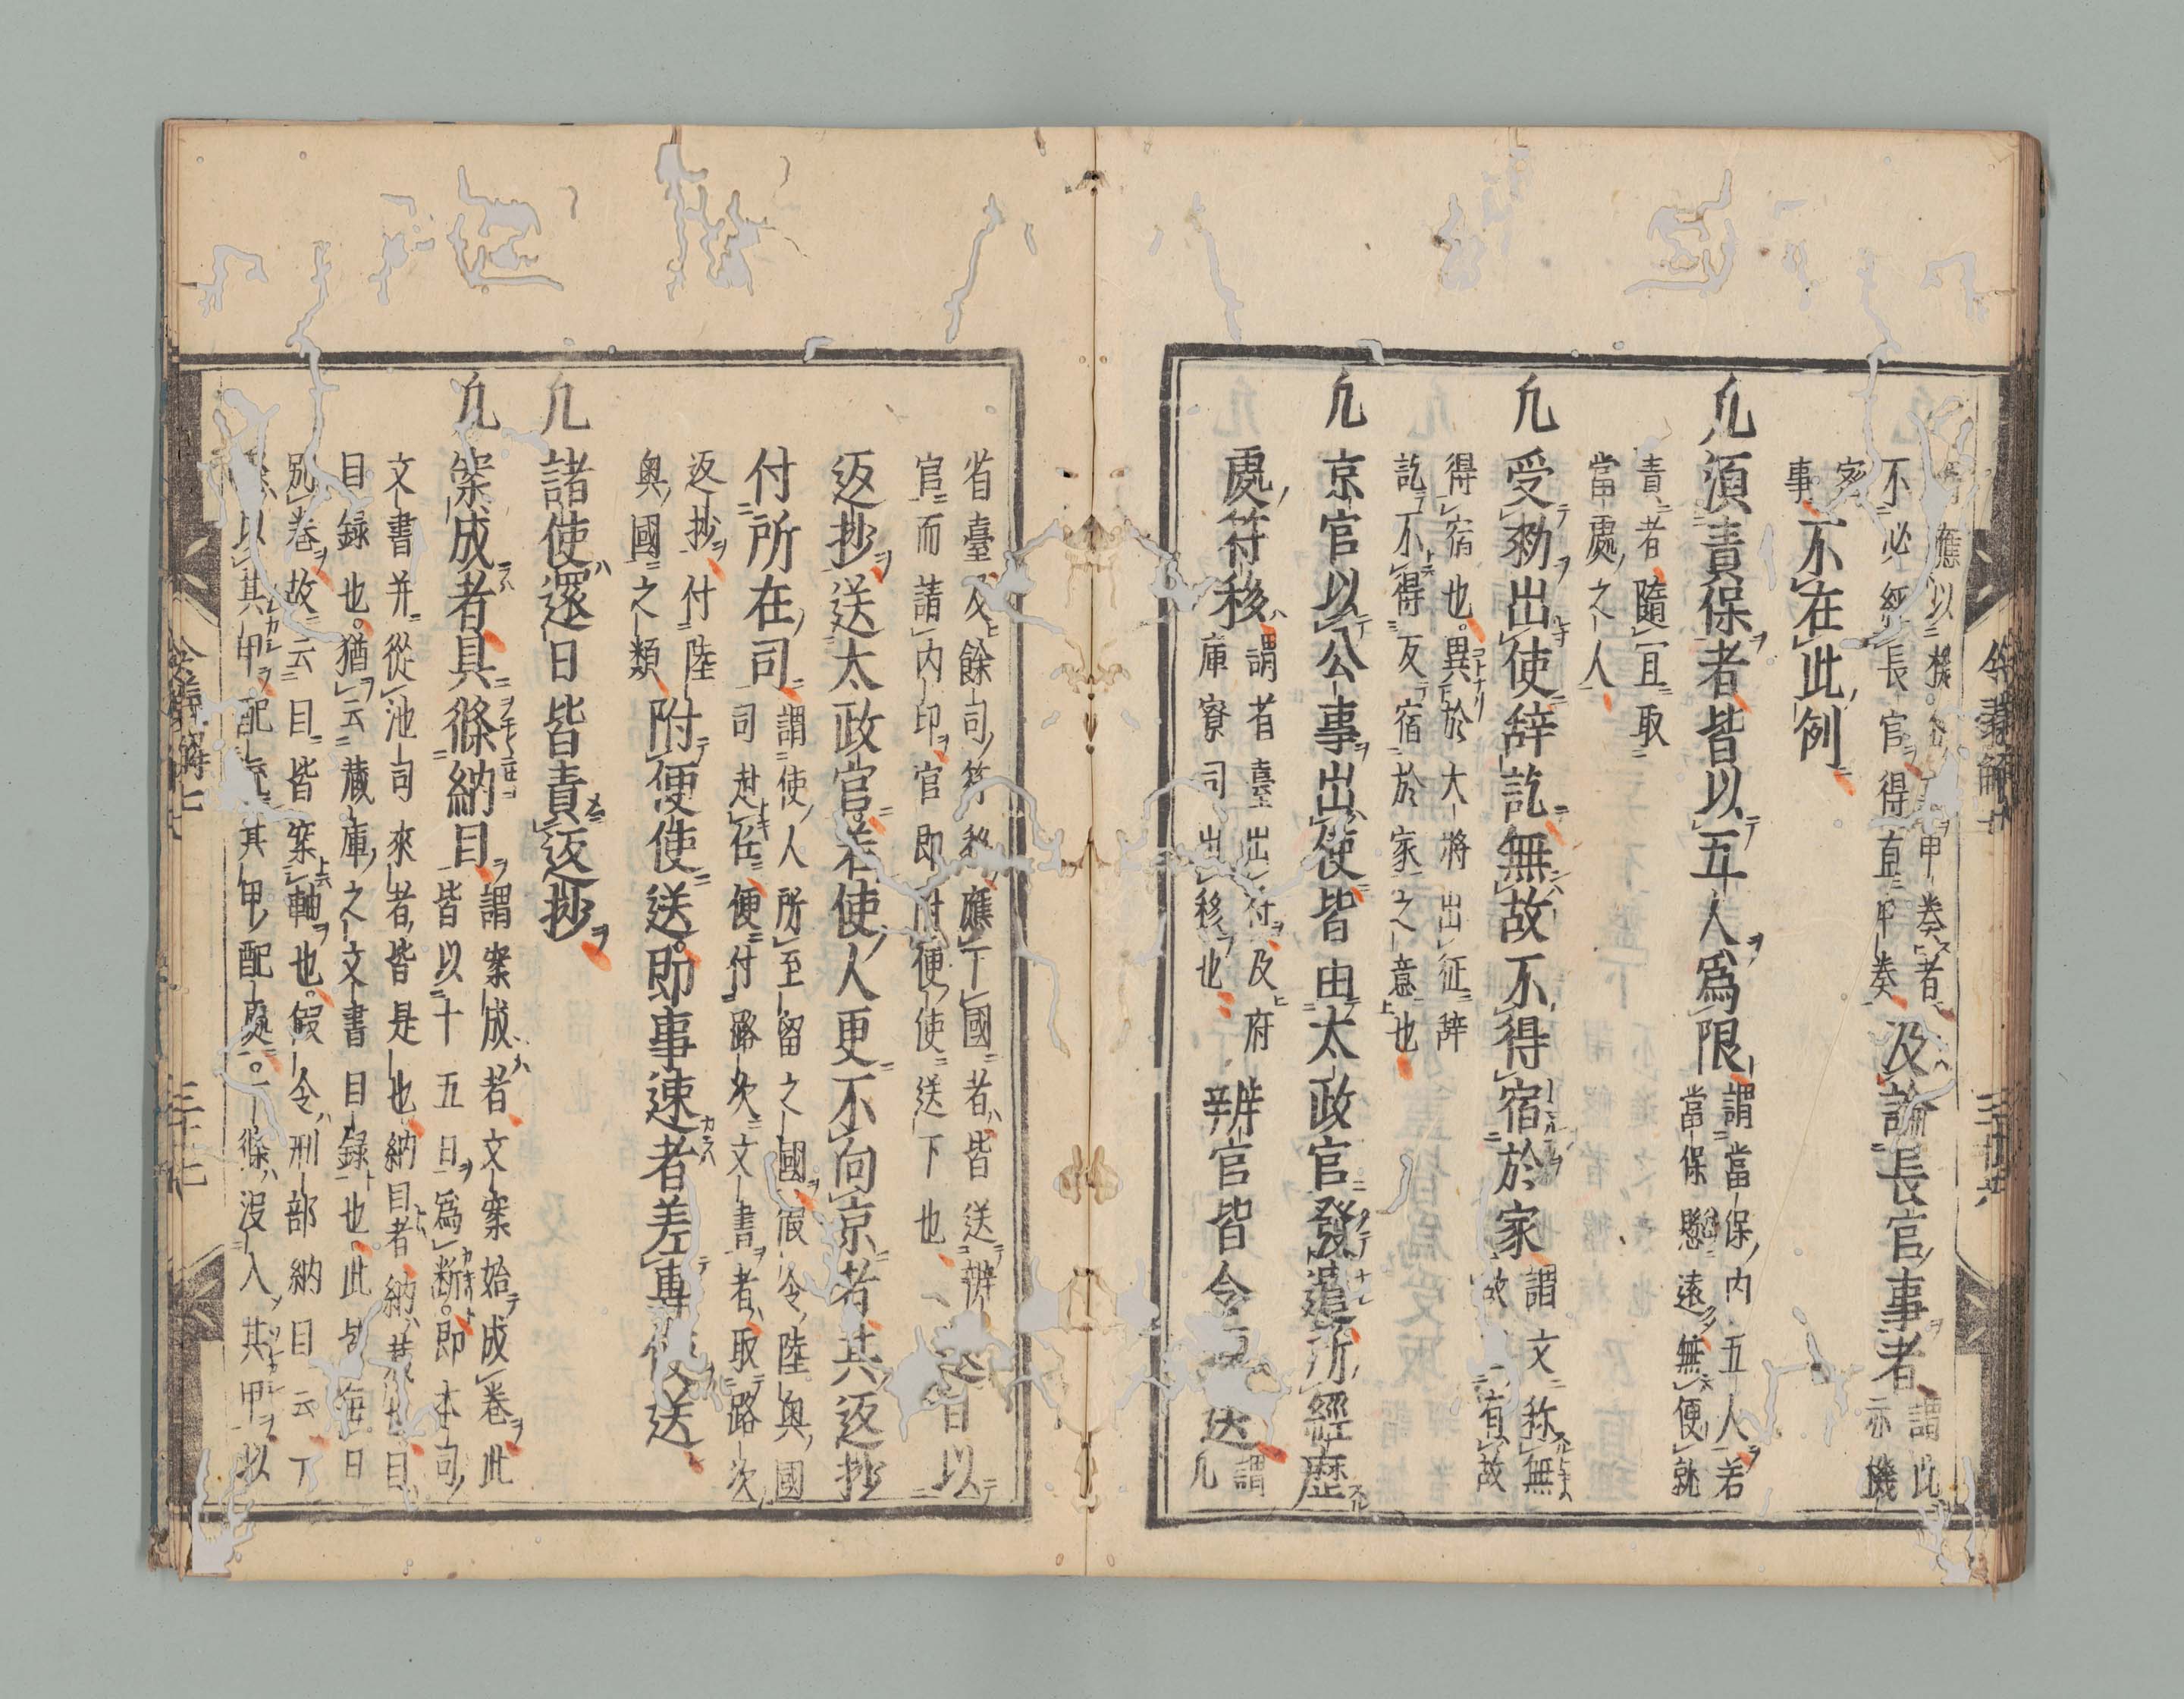 應以機
不必經長官得直申奏
奏者
及論長官事者
謂此
亦機
密
事
不在此例
凡須責保者皆以五人爲限
謂當保内五人若
當保懸遠無便就
責者隨且取
當處之人
凡受勅出使辞訖無故不得宿於家
謂文称無
故有故
得宿也異於大將出征辞
訖不得反宿於家之意也
凡京官以公事出使皆由太政官發遣所經歴
處符移
謂省臺出符及府
庫寮司出移也
辨官皆令送
謂
凡
省臺及餘司符移應下國者皆送辨
官而請内印官即附便使送下也
日以
返抄送太政官若使人更不向京者其返抄
付所在司
謂使人所至留之國假令陸奥國
司赴任便付路次文書者取路次
返抄付陸
奥國之類
附便使送即事速者差專使送
凡諸使還日皆責返抄
凡案成者具條納目
謂案成者文案始成卷此
皆以十五日爲断即本司
文書并從池司來者皆是也納目者納蔵也目
目録也猶云蔵庫之文書目録也此毎日
別卷故云目皆案軸也假令刑部納目云丁
以其甲配其甲配處一條没入其甲以
令義解七
三十七